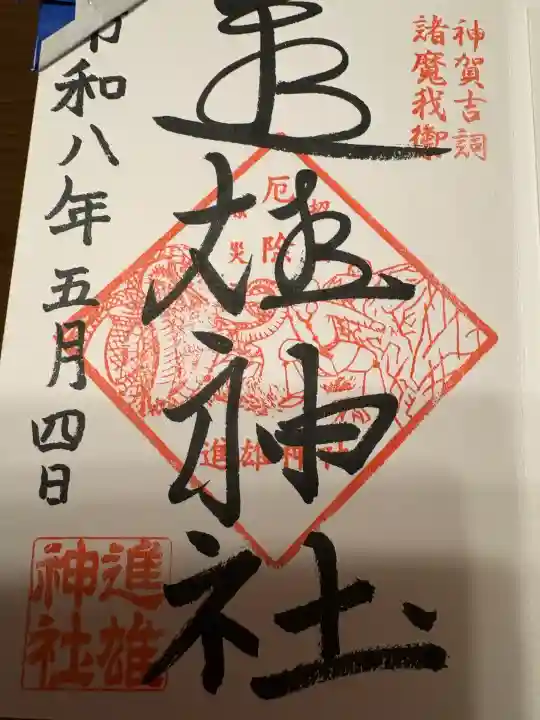 神賀吉詞
諸魔我衞
厄除
災
進雄神社
進雄神社
令和八年五月四日
進雄
神社